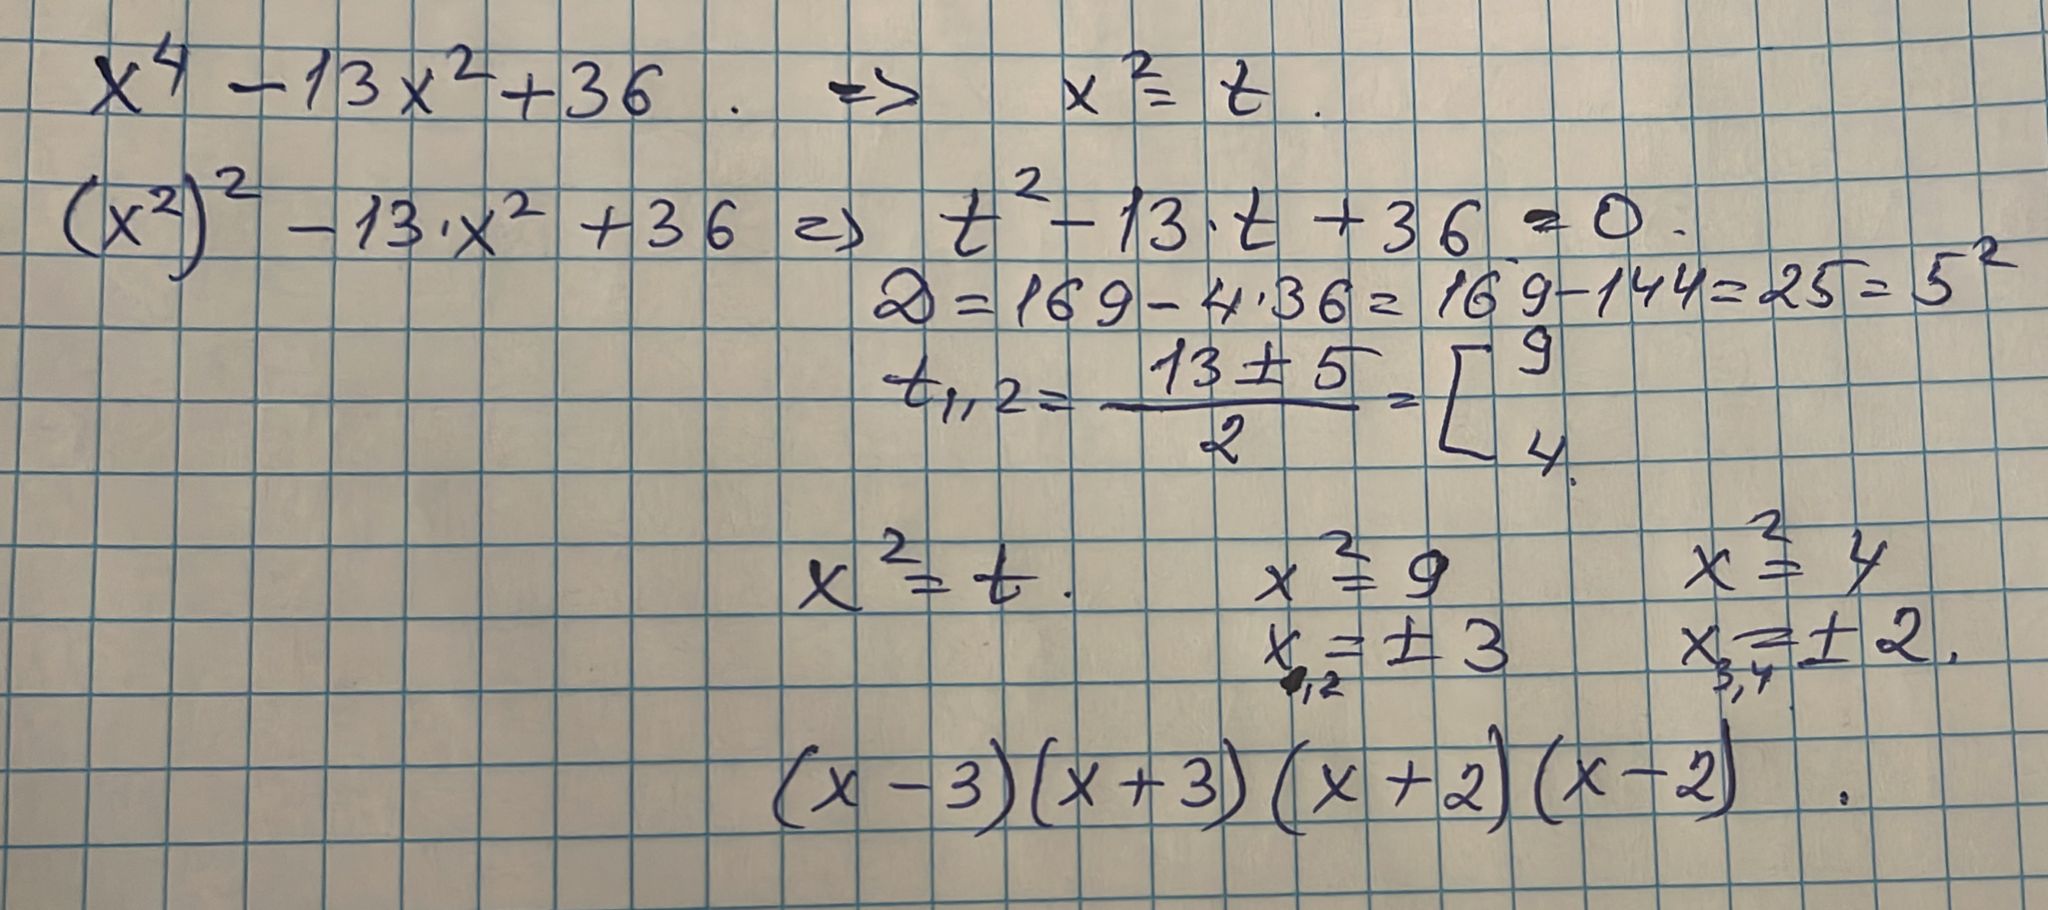 x⁴ - 13x² + 36 . => x² = t .
(x²)² - 13·x² + 36 => t² - 13·t + 36 = 0 .
D = 169 - 4·36 = 169 - 144 = 25 = 5²
t₁,,₂ = (13 ± 5)/2 = [ 9
4.
x² = t . x² = 9 x² = 4
x₁,₂ = ± 3 x₃,₄ = ± 2.
(x - 3)(x + 3)(x + 2)(x - 2) .